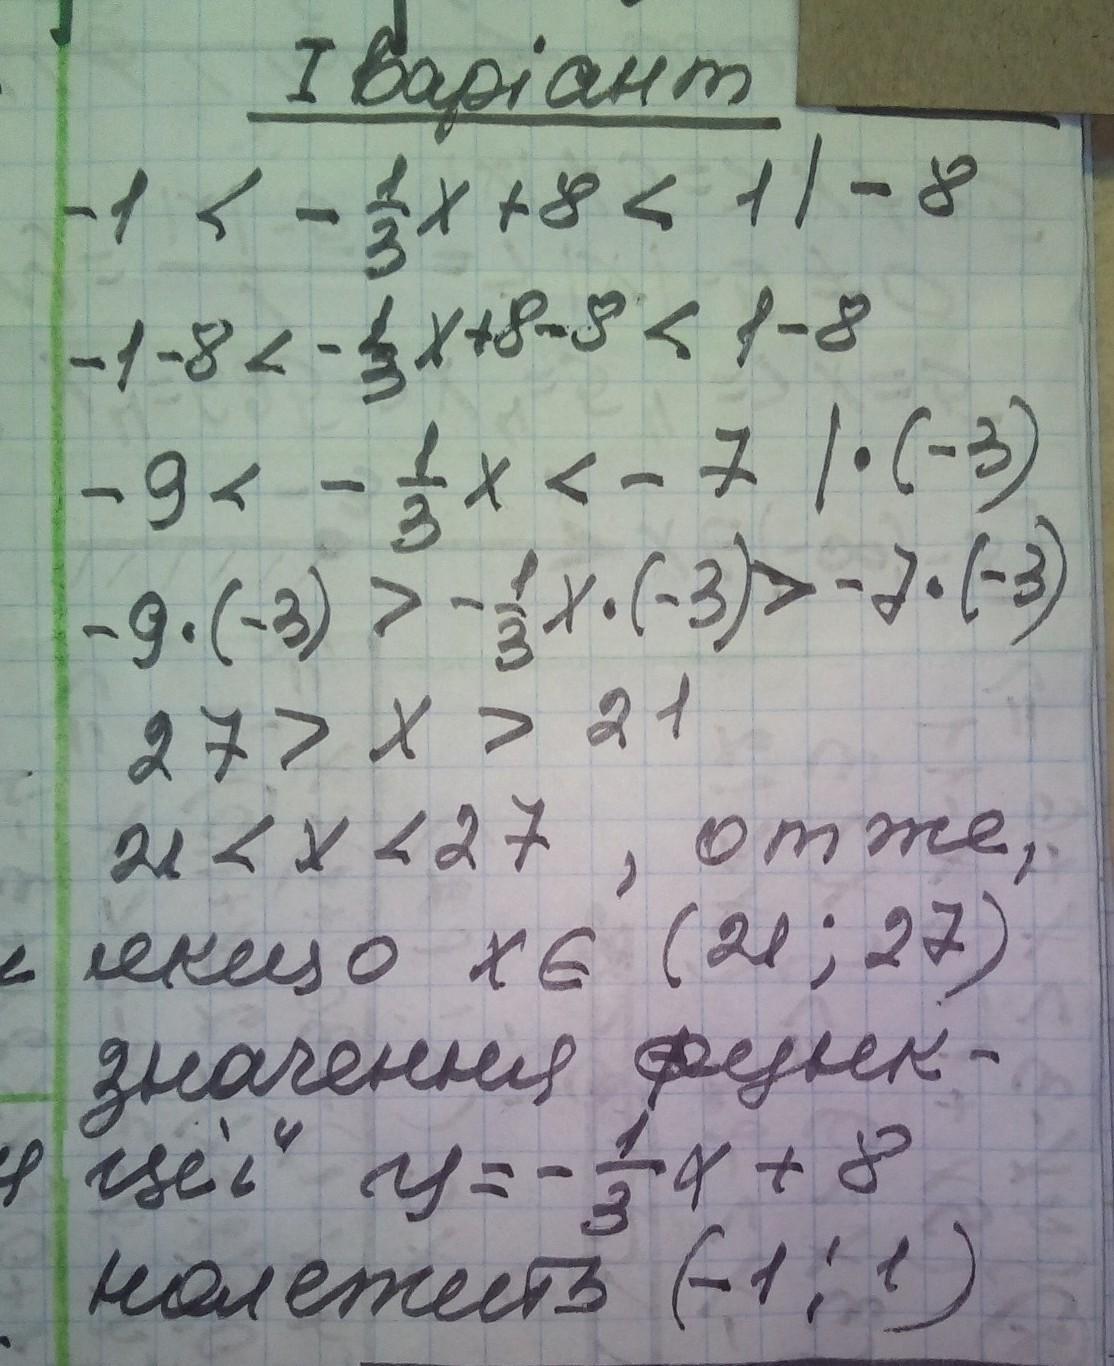 І варіант
-1 < -1/3x + 8 < 1 | - 8
-1 - 8 < -1/3x + 8 - 8 < 1 - 8
-9 < -1/3x < -7 | · (-3)
-9 · (-3) > -1/3x · (-3) > -7 · (-3)
27 > x > 21
21 < x < 27, отже,
якщо x ∈ (21; 27)
значення функ-
ції y = -1/3x + 8
належить (-1; 1)